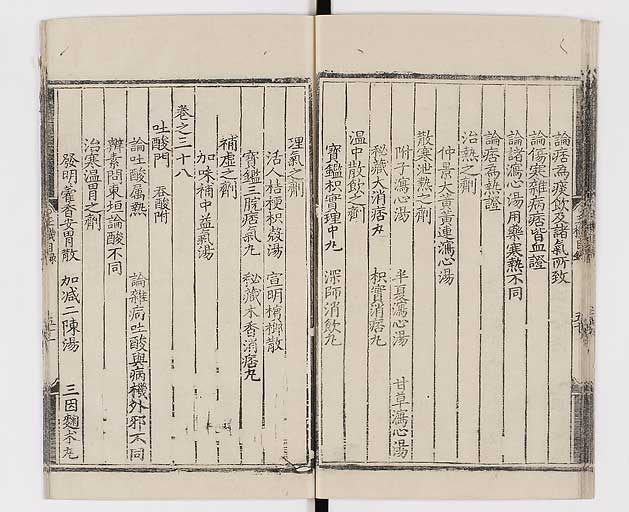 論痞為痰飲及諸氣所致
論傷寒雜病痞皆血證
論諸瀉心湯用藥寒熱不同
論痞為熱證
治熱之劑
仲景大黃黃連瀉心湯
散寒泄熱之劑
附子瀉心湯 半夏瀉心湯 甘草瀉心湯
秘藏大消痞丸 枳實消痞丸
溫中散飲之劑
寶鑑枳實理中丸 深師消飲丸
理氣之劑
活人桔梗枳殼湯 宣明檳榔散
寶鑑三脘痞氣丸 秘藏木香消痞丸
補虛之劑
加味補中益氣湯
卷之三十八
吐酸門 吞酸附
論吐酸屬熱 論雜病吐酸與病機外邪不同
辯素問東垣論酸不同
治寒溫胃之劑
發明藿香安胃散 加減二陳湯 三因麴朮丸